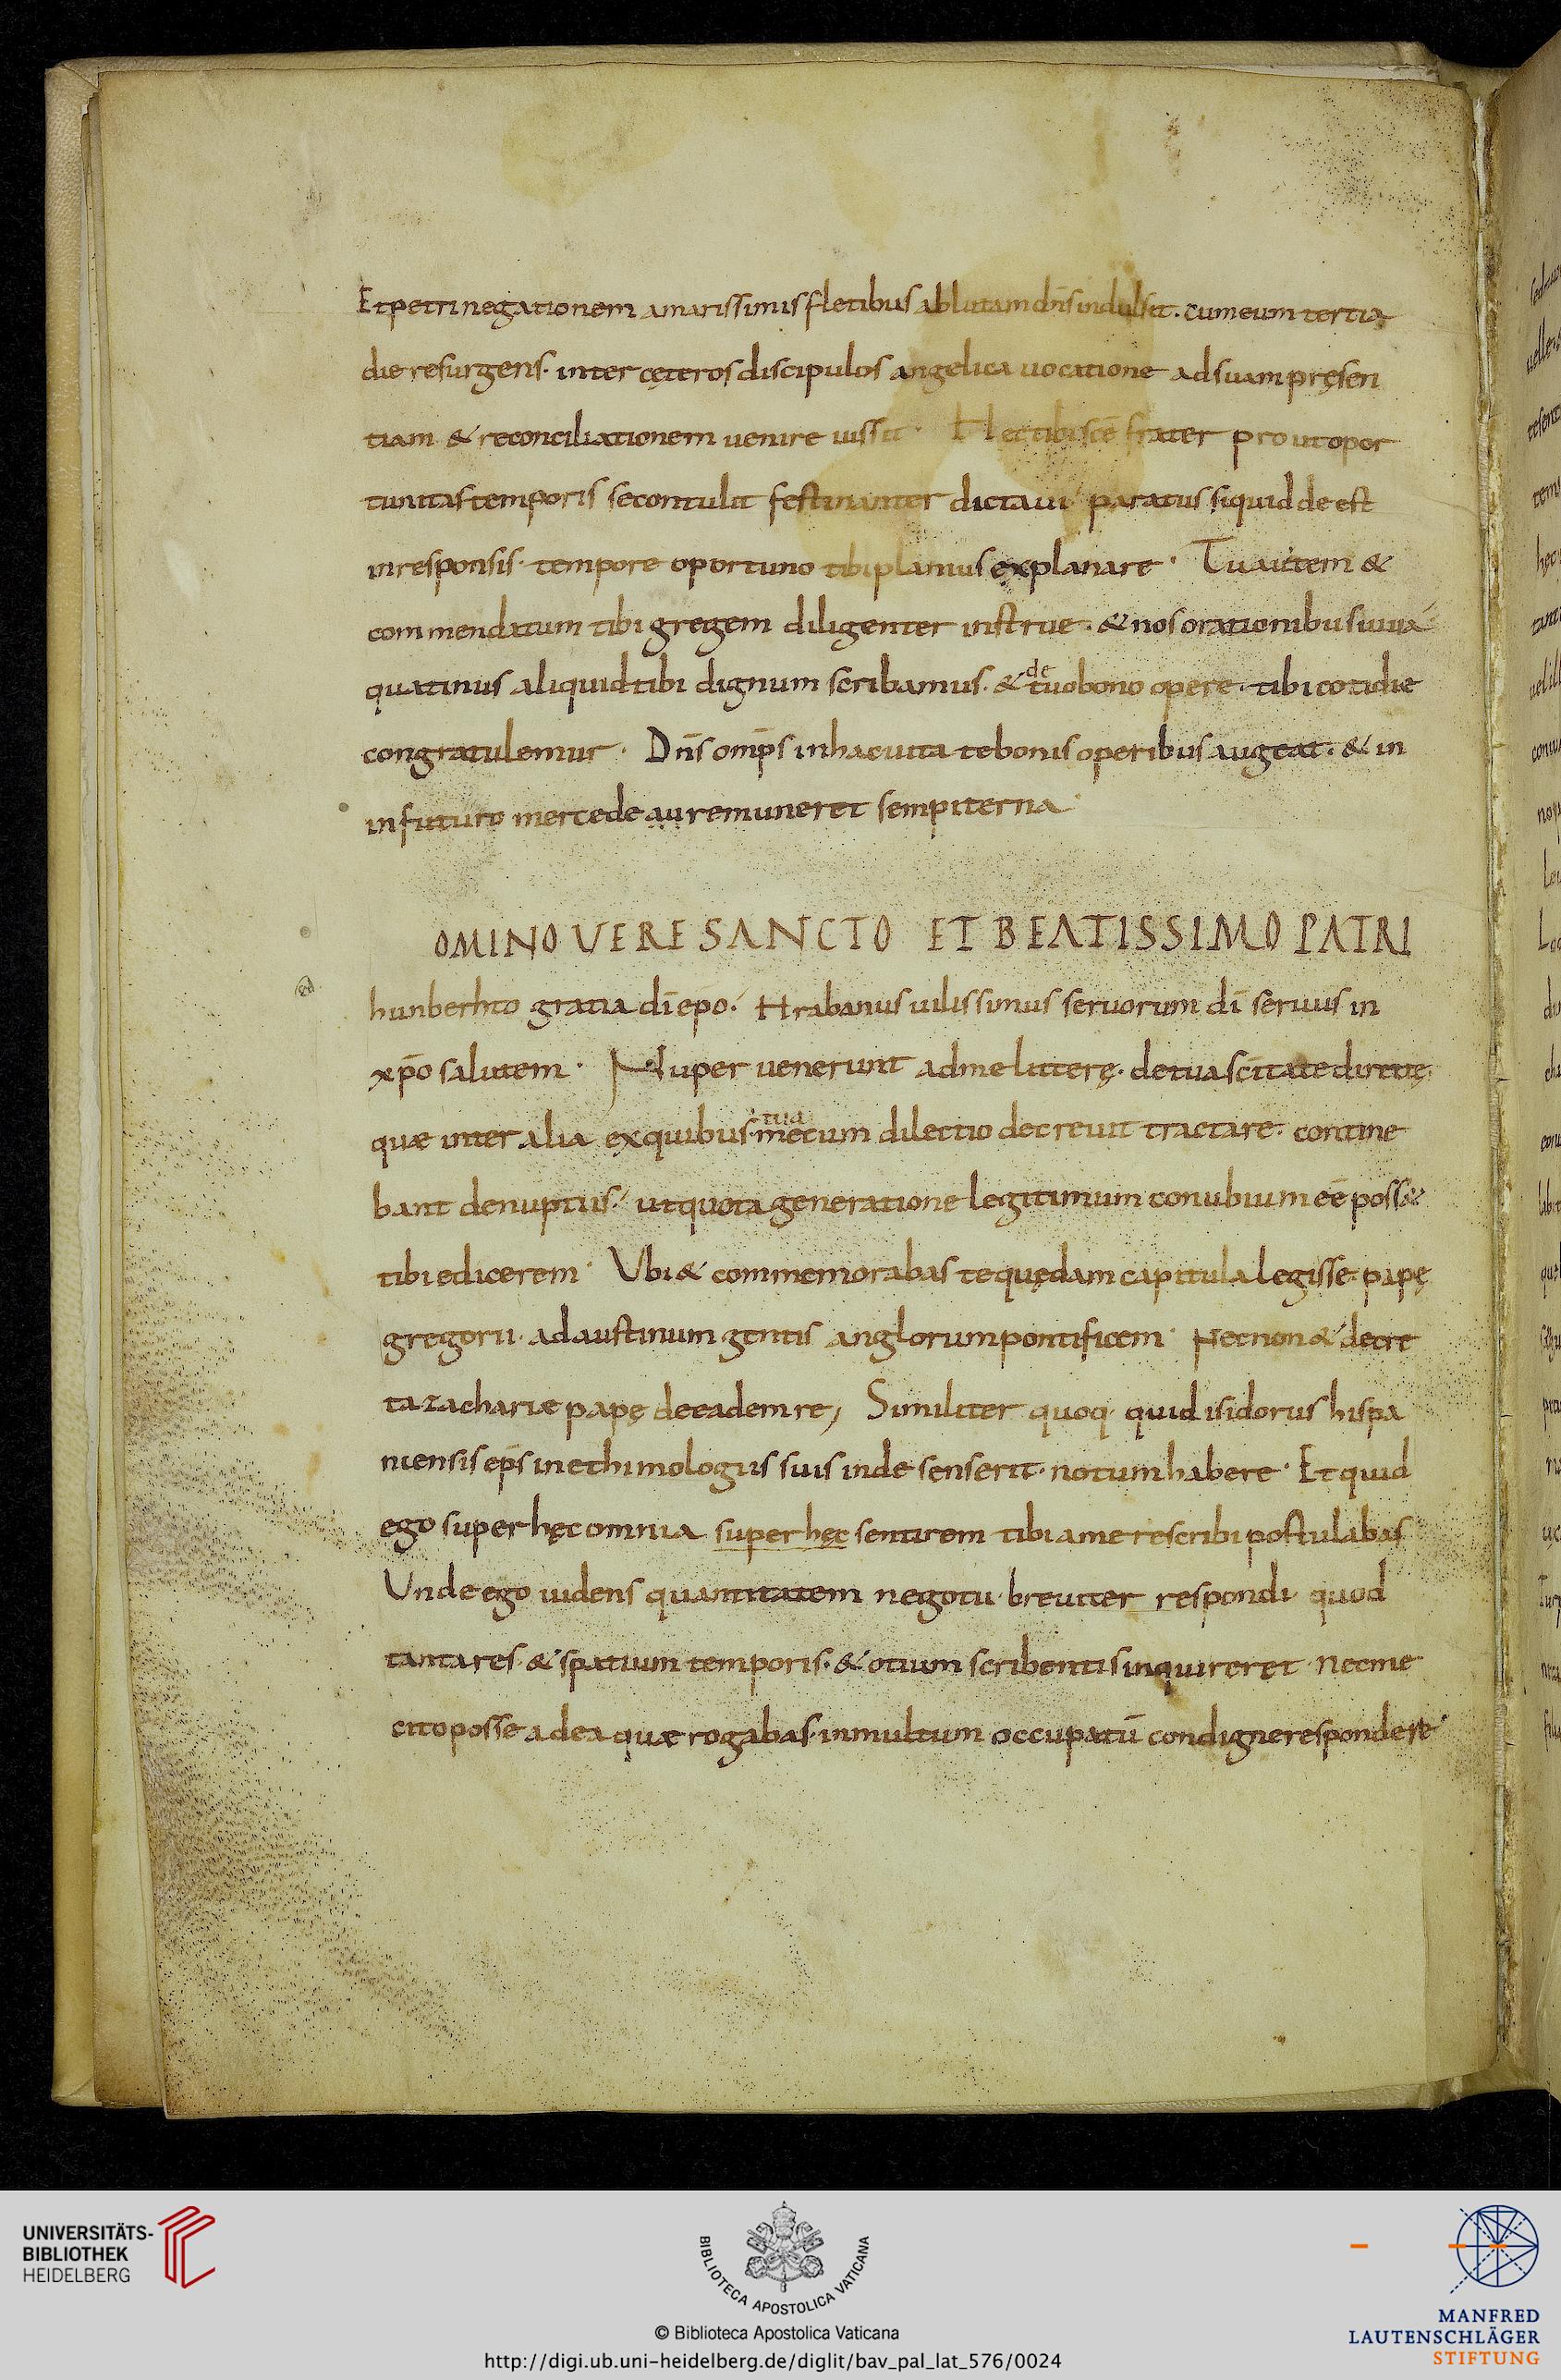 Et petri negationem amarissimis fletibus ablutam dn̄s indulsit. cum eum tertia
die resurgens. inter cęteros discipulos angelica uocatione ad suam pręsen
tiam & reconciliationem uenire iussit. Hęc tibi sc̄e frater prout opor
tunitas temporis se contulit festinanter dictaui. paratus si quid de est
in responsis. tempore oportuno tibi planius explanare. Tu autem &
commendatum tibi gregem diligenter instrue. & nos orationibus iuua
quatinus aliquid tibi dignum scribamus. & de tuo bono opere. tibi cotidie
congratulemur. Dn̄s omp̄s in hac uita te bonis operibus augeat. & in
in futuro mercede au remuneret sempiterna.
OMINO VERE SANCTO ET BEATISSIMO PATRI
hunberhto gratia dī ep̄o. Hrabanus uilissimus seruorum dī seruus in
xp̄o salutem. Nuper uenerunt ad me litterę. de tua sc̄itate directę.
quæ inter alia ex quibus mecum tua dilectio decreuit tractare. contine
bant de nuptiis. ut quota generatione legitimum conubium eē poss&
tibi edicerem. Vbi & commemorabas te quędam capitula legisse. papę
gregorii. ad austinum gentis anglorum pontificem. Necnon & decre
ta zachariæ papę de eadem re, Similiter quoq. quid isidorus hispa
niensis ep̄s in ethimologiis suis inde senserit. notum habere. Et quid
ego super hęc omnia super hęc sentirem tibi a me rescribi postulabas
Unde ego uidens quantitatem negotii. breuiter respondi. quod
tanta res. & spatium temporis. & otium scribentis inquireret. nec me
cito posse ad ea quæ rogabas. in multum occupatū condigne respondere.
UNIVERSITÄTS-
BIBLIOTHEK
HEIDELBERG
BIBLIOTECA APOSTOLICA VATICANA
© Biblioteca Apostolica Vaticana
http://digi.ub.uni-heidelberg.de/diglit/bav_pal_lat_576/0024
MANFRED
LAUTENSCHLÄGER
STIFTUNG